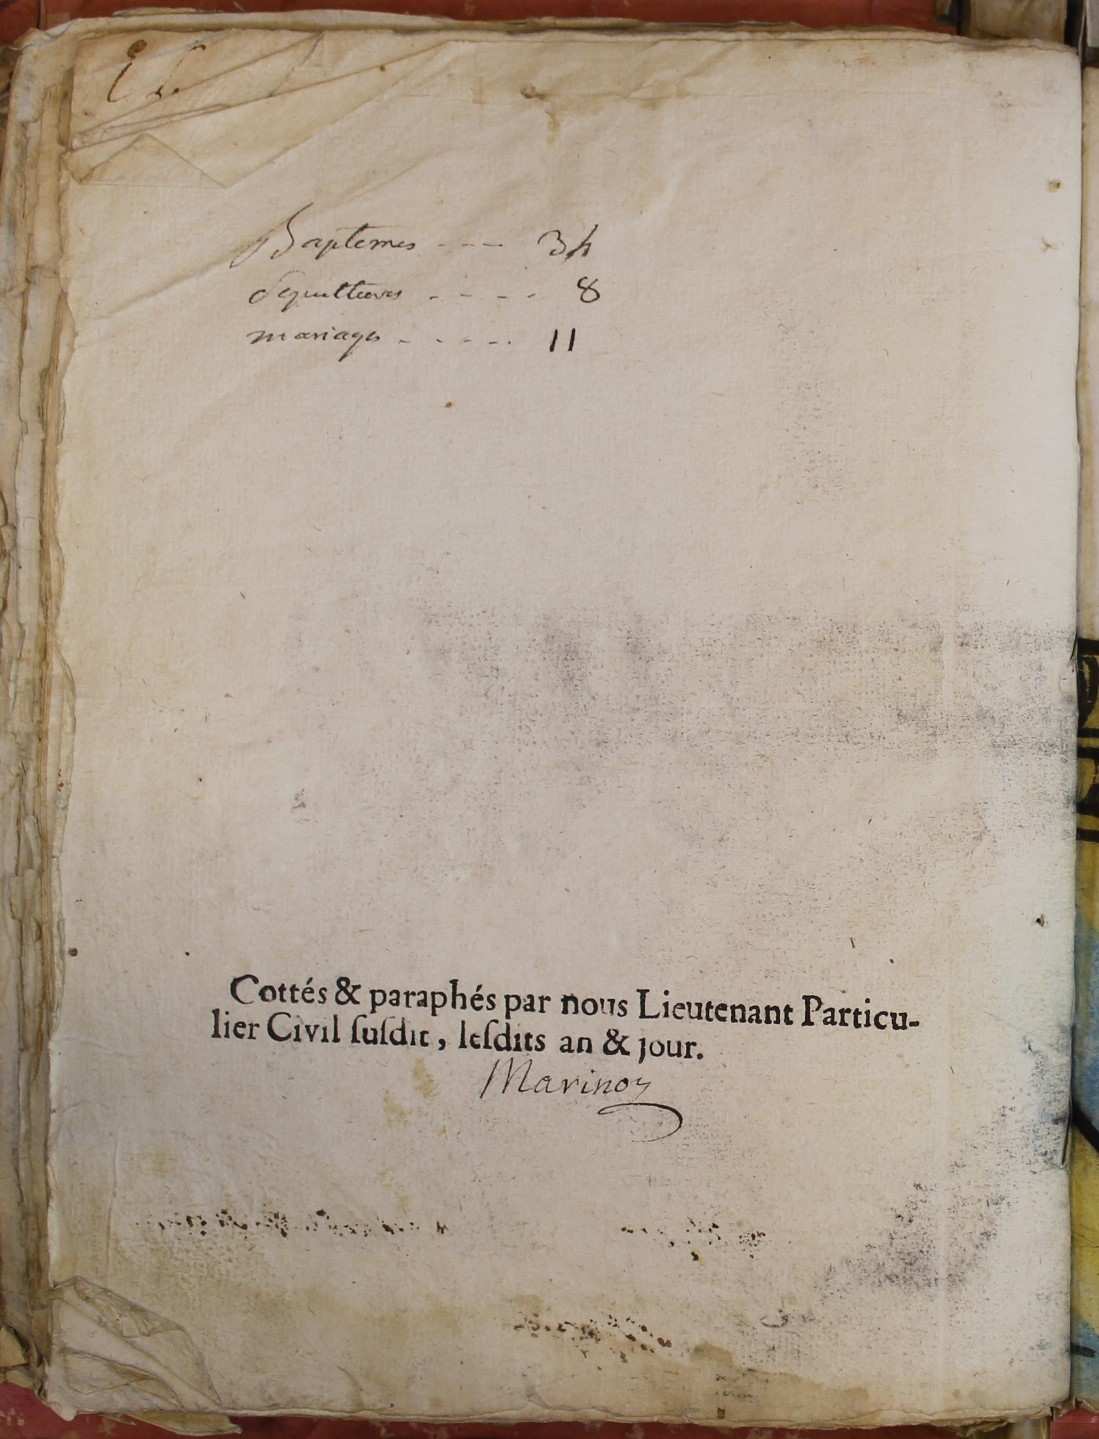 Baptemes - - - - 34
Sepultures - - - - - 8
mariages - - - - - 11
Cottés & paraphés par nous Lieutenant Particu-
lier Civil ſuſdit, leſdits an & jour.
Marinoy